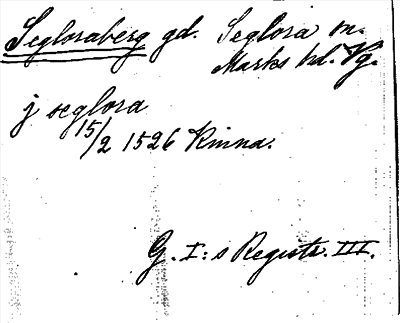 Segloraberg gd. Seglora sn.
Marks hd. Vg.
j seglora
15/2 1526 Kinna.
G. I:s Registr. III.